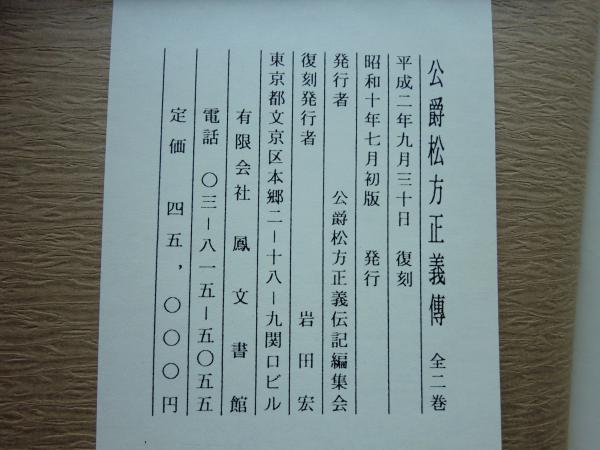 公爵松方正義傳 全二巻
平成二年九月三十日 復刻
昭和十年七月初版 発行
発行者 公爵松方正義伝記編集会
復刻発行者 岩田宏
東京都文京区本郷二ー十八ー九関口ビル
有限会社 鳳文書館
電話 〇三ー八一五ー五〇五五
定価 四五，〇〇〇円